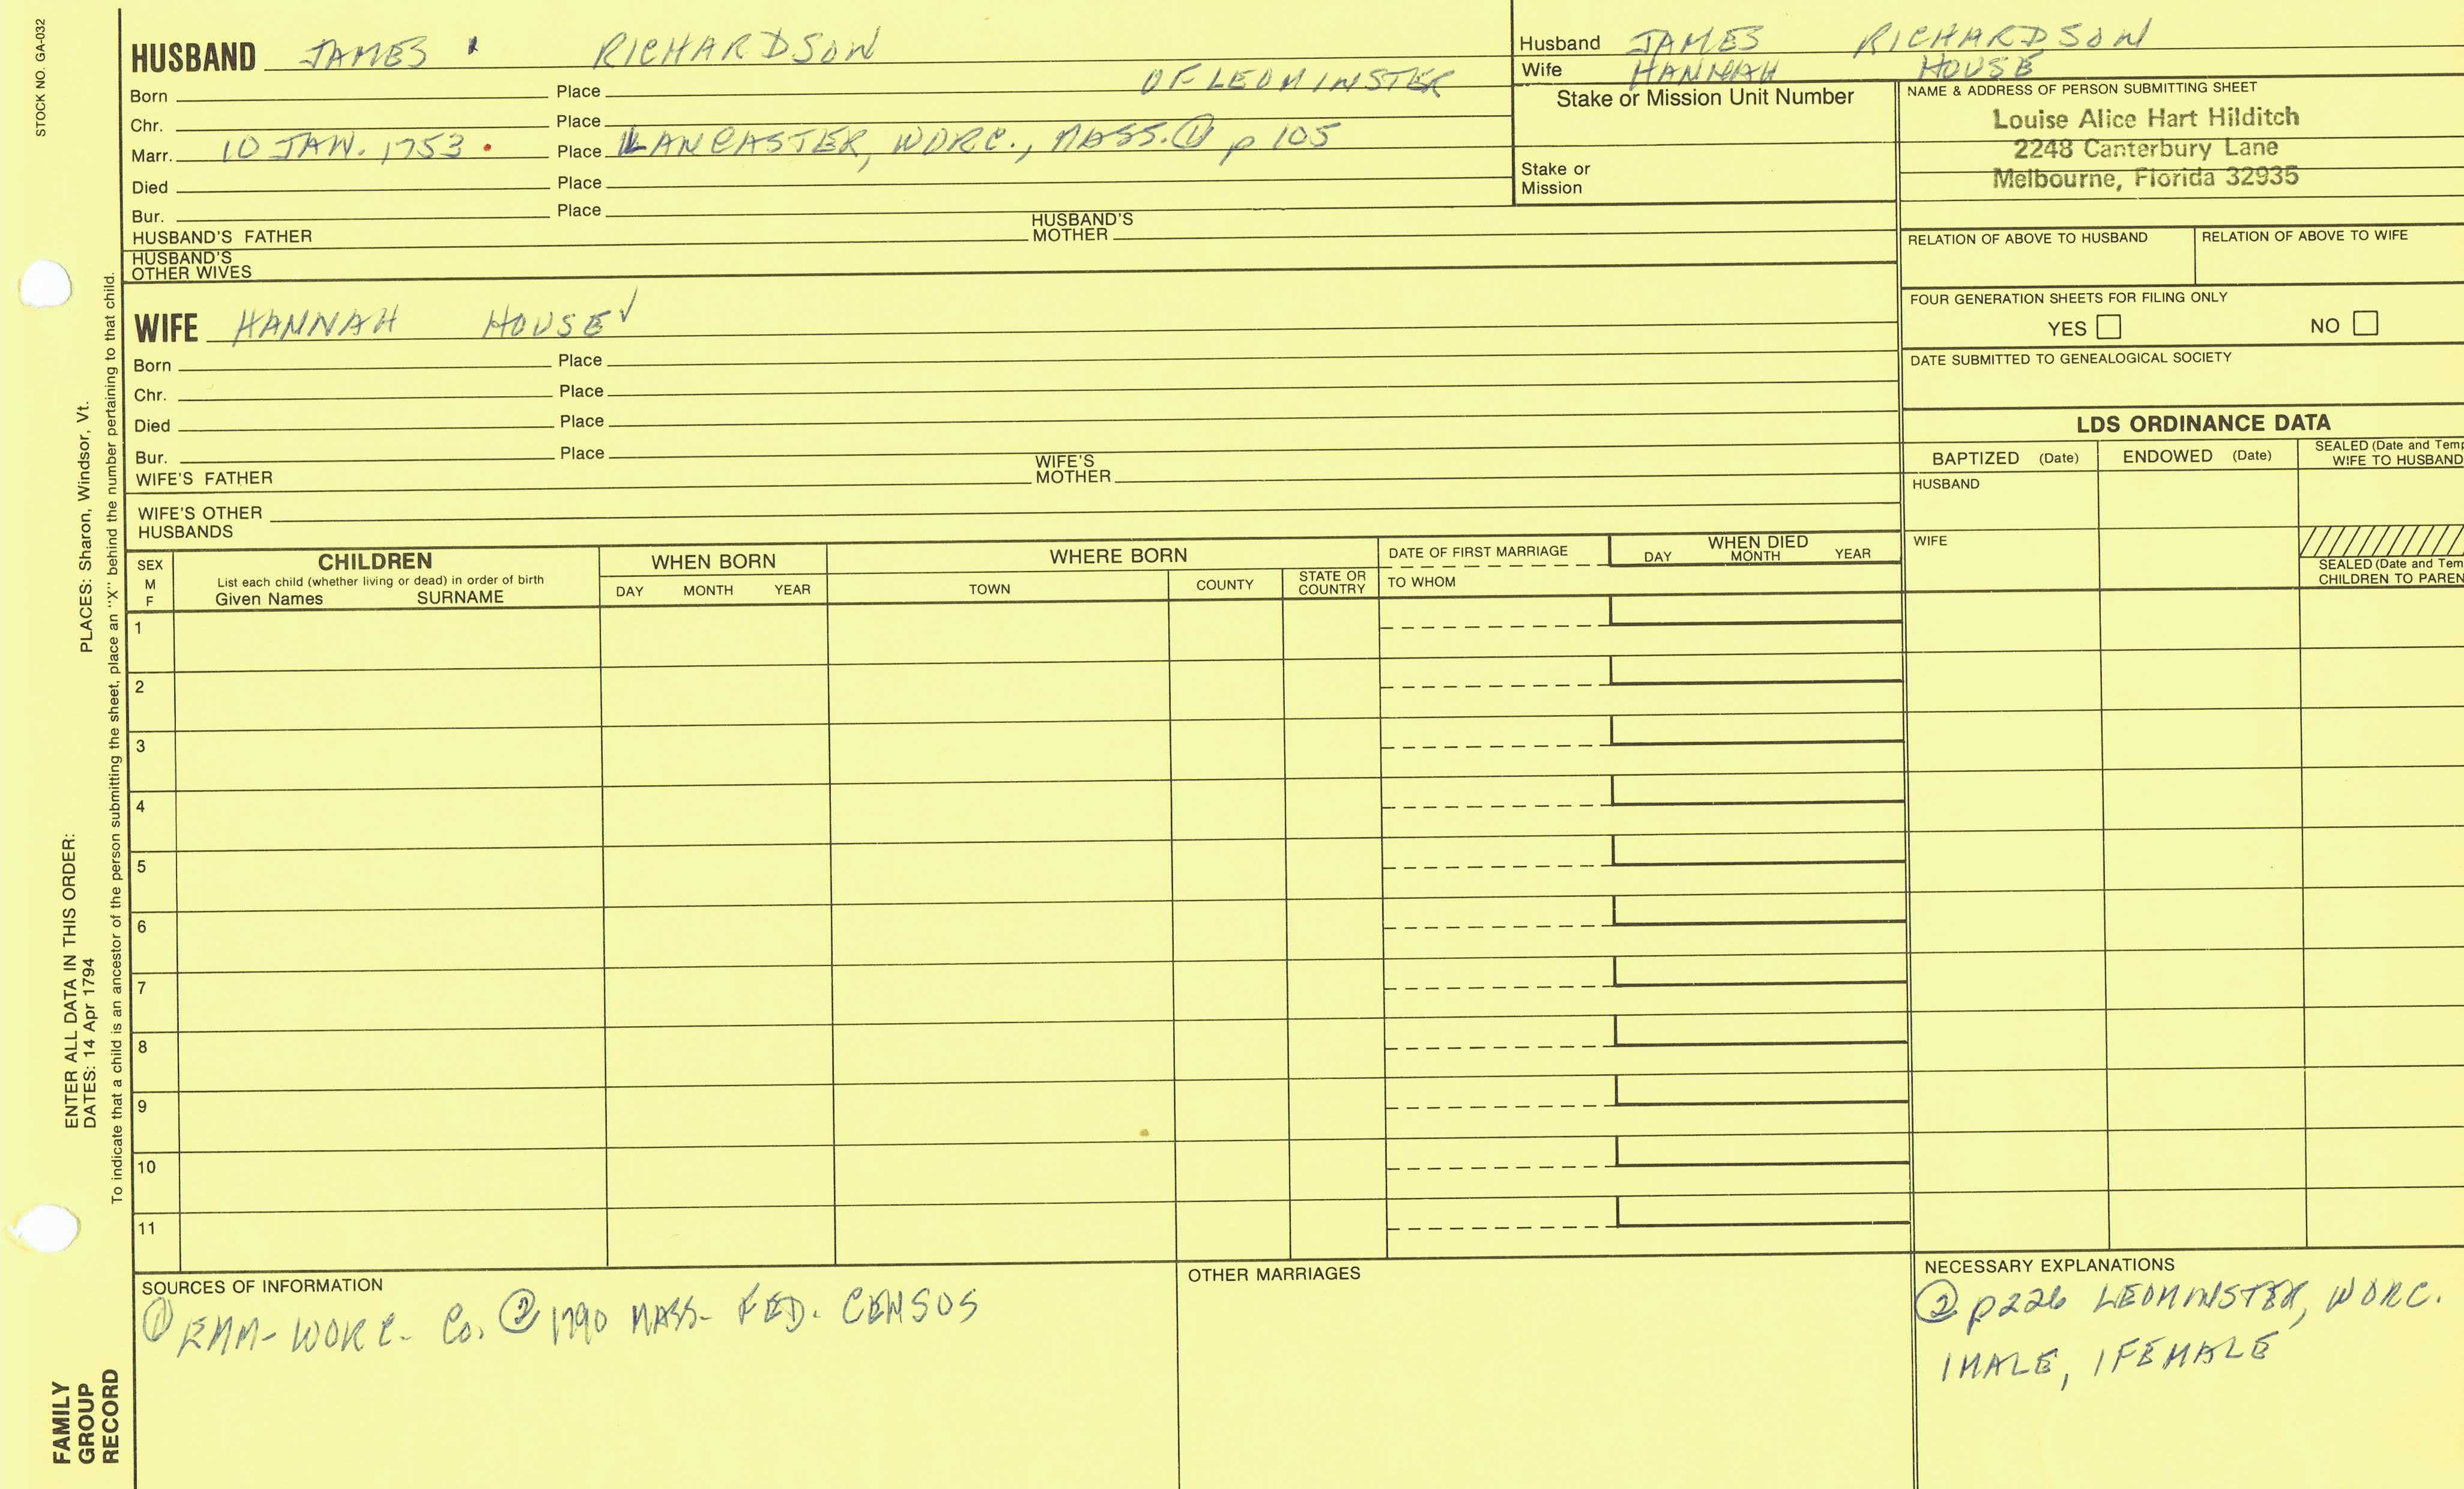 STOCK NO. GA-032
HUSBAND JAMES RICHARDSON
Born Place OF LEOMINSTER
Chr. Place
Marr. 10 JAN. 1753 Place LANCASTER, WORC., MASS. ① p 105
Died Place
Bur. Place
HUSBAND'S FATHER HUSBAND'S MOTHER
HUSBAND'S OTHER WIVES
Husband JAMES RICHARDSON
Wife HANNAH HOUSE
Stake or Mission Unit Number
Stake or Mission
NAME & ADDRESS OF PERSON SUBMITTING SHEET
Louise Alice Hart Hilditch
2248 Canterbury Lane
Melbourne, Florida 32935
RELATION OF ABOVE TO HUSBAND RELATION OF ABOVE TO WIFE
FOUR GENERATION SHEETS FOR FILING ONLY
YES NO
DATE SUBMITTED TO GENEALOGICAL SOCIETY
WIFE HANNAH HOUSE ✓
Born Place
Chr. Place
Died Place
Bur. Place
WIFE'S FATHER WIFE'S MOTHER
WIFE'S OTHER HUSBANDS
LDS ORDINANCE DATA
BAPTIZED (Date) ENDOWED (Date) SEALED (Date and Temp
WIFE TO HUSBAND
HUSBAND
WIFE
SEALED (Date and Tem
CHILDREN TO PAREN
SEX
M
F
CHILDREN
List each child (whether living or dead) in order of birth
Given Names SURNAME
WHEN BORN
DAY MONTH YEAR
WHERE BORN
TOWN COUNTY STATE OR COUNTRY
DATE OF FIRST MARRIAGE
TO WHOM
WHEN DIED
DAY MONTH YEAR
1
2
3
4
5
6
7
8
9
10
11
SOURCES OF INFORMATION
① EMM-WORC. Co. ② 1790 MASS. FED. CENSUS
OTHER MARRIAGES
NECESSARY EXPLANATIONS
② p226 LEOMINSTER, WORC.
1 MALE, 1 FEMALE
PLACES: Sharon, Windsor, Vt.
ENTER ALL DATA IN THIS ORDER:
DATES: 14 Apr 1794
To indicate that a child is an ancestor of the person submitting the sheet, place an "X" behind the number pertaining to that child.
FAMILY
GROUP
RECORD